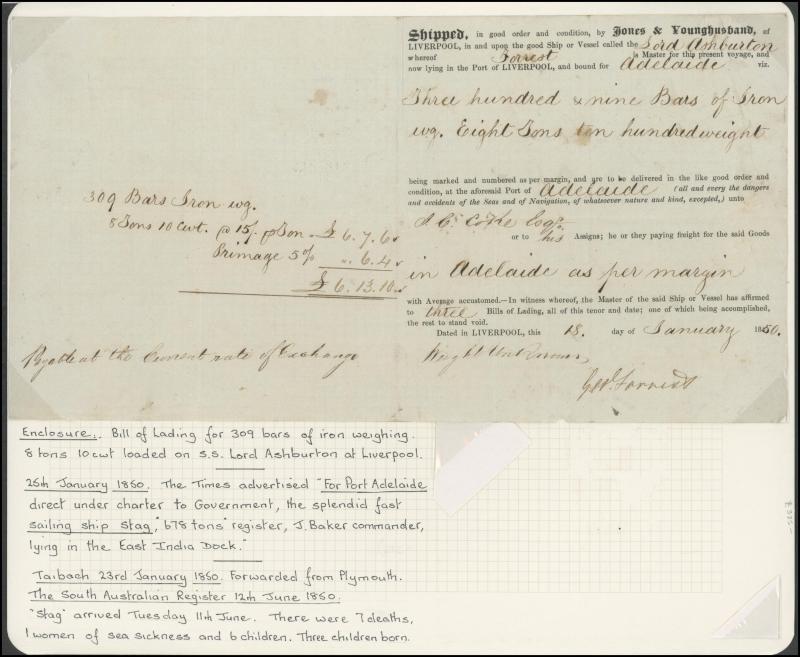 Shipped, in good order and condition, by Jones & Younghusband, of
LIVERPOOL, in and upon the good Ship or Vessel called the Lord Ashburton
whereof Forrest is Master for this present voyage, and
now lying in the Port of LIVERPOOL, and bound for Adelaide viz.
Three hundred & nine Bars of Iron
wg. Eight Tons ten hundredweight
being marked and numbered as per margin, and are to be delivered in the like good order and
condition, at the aforesaid Port of Adelaide (all and every the dangers
and accidents of the Seas and of Navigation, of whatsoever nature and kind, excepted,) unto
Esqr.
or to his Assigns; he or they paying freight for the said Goods
in Adelaide as per margin
with Average accustomed.—In witness whereof, the Master of the said Ship or Vessel has affirmed
to three Bills of Lading, all of this tenor and date; one of which being accomplished,
the rest to stand void.
Dated in LIVERPOOL, this 18. day of January 1850.
Weight Unknown,
Geo. Forrest
309 Bars Iron wg.
8 Tons 10 cwt. @ 15/- p Ton £ 6.7.6
Primage 5% " 6.4
£ 6.13.10
Pyable at the Current rate of Exchange
Enclosure:. Bill of Lading for 309 bars of iron weighing.
8 tons 10cwt loaded on S.S. Lord Ashburton at Liverpool.
25th January 1850. The Times advertised "For Port Adelaide
direct under charter to Government, the splendid fast
sailing ship Stag," 678 tons" register, J. Baker commander,
lying in the East India Dock."
Taibach 23rd January 1850. Forwarded from Plymouth.
The South Australian Register 12th June 1850.
"Stag" arrived Tuesday 11th June. There were 7 deaths,
1 women of sea sickness and 6 children. Three children born.